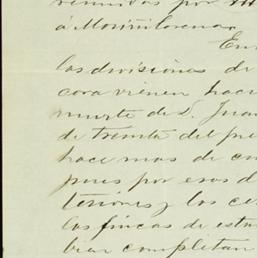 reunidas por
á
En
las divisiones de
cora vienen hace
muerte de D. Juan
de treinta del pre
hace mas de cin
pues por esos d
teriores y los ce
las fincas de esta
bian completan